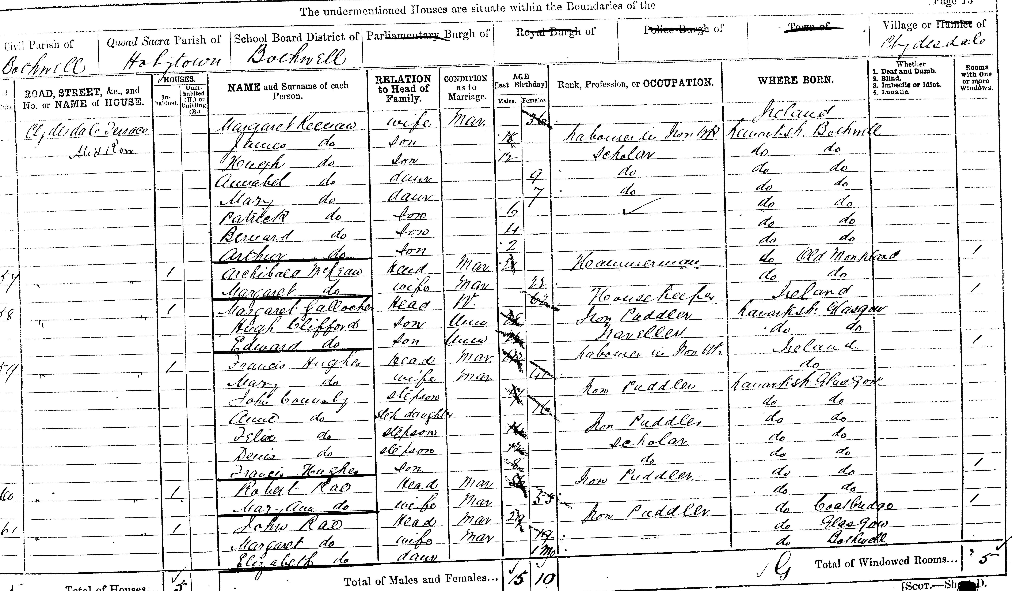 The undermentioned Houses are situate within the Boundaries of the
Page 15
Civil Parish of Bothwell
Quoad Sacra Parish of Holytown
School Board District of Bothwell
Parliamentary Burgh of
Royal Burgh of
Police Burgh of
Town of
Village or Hamlet of Clydesdale
ROAD, STREET, &c., and No. or NAME of HOUSE.
HOUSES.
NAME and Surname of each Person.
RELATION to Head of Family.
CONDITION as to Marriage.
AGE [last Birthday] Males. Females
Rank, Profession, or OCCUPATION.
WHERE BORN.
Whether 1. Deaf and Dumb. 2. Blind. 3. Imbecile or Idiot. 4. Lunatic
Rooms with One or more Windows.
Clydesdale Margaret wife Mar 36 Ireland
James do son 18 Labourer in Iron Wks Lanarksh. Bothwell
Hugh do son 12 Scholar do do
Annabel do daur 9 do do do
Mary do daur 7 do do do
Patrick do son 6 do do
Bernard do son 4 do do
Arthur do son 2 do do
1 Archibald McGraw Head Mar Hammerman do Old Monkland 1
Margaret do wife Mar 22 do do
58 1 Margaret Gallocher Head W Housekeeper Ireland 1
Hugh Clifford son Unm Iron Puddler Lanarksh. Glasgow
Edward do son Unm Traveller do do
59 1 Francis Hughes Head Mar Labourer in Iron Wk. Ireland 1
Mary do wife Mar do
John Connoly stepson Iron Puddler Lanarksh Glasgow
Anne do stepdaughter 16 do do
Felix do stepson Iron Puddler do do
Denis do stepson Scholar do do
Francis Hughes son do do do
60 1 Robert Rae Head Mar Iron Puddler do do 1
Mary Ann do wife Mar 55 do do
61 1 John Rae Head Mar 29 Iron Puddler do Coatbridge 1
Margaret do wife Mar 19 do Glasgow
Elizabeth do daur 1 Mo do Bothwell
Total of Houses 5
Total of Males and Females... 15 10
Total of Windowed Rooms... 5
[Scot.—Sh D.